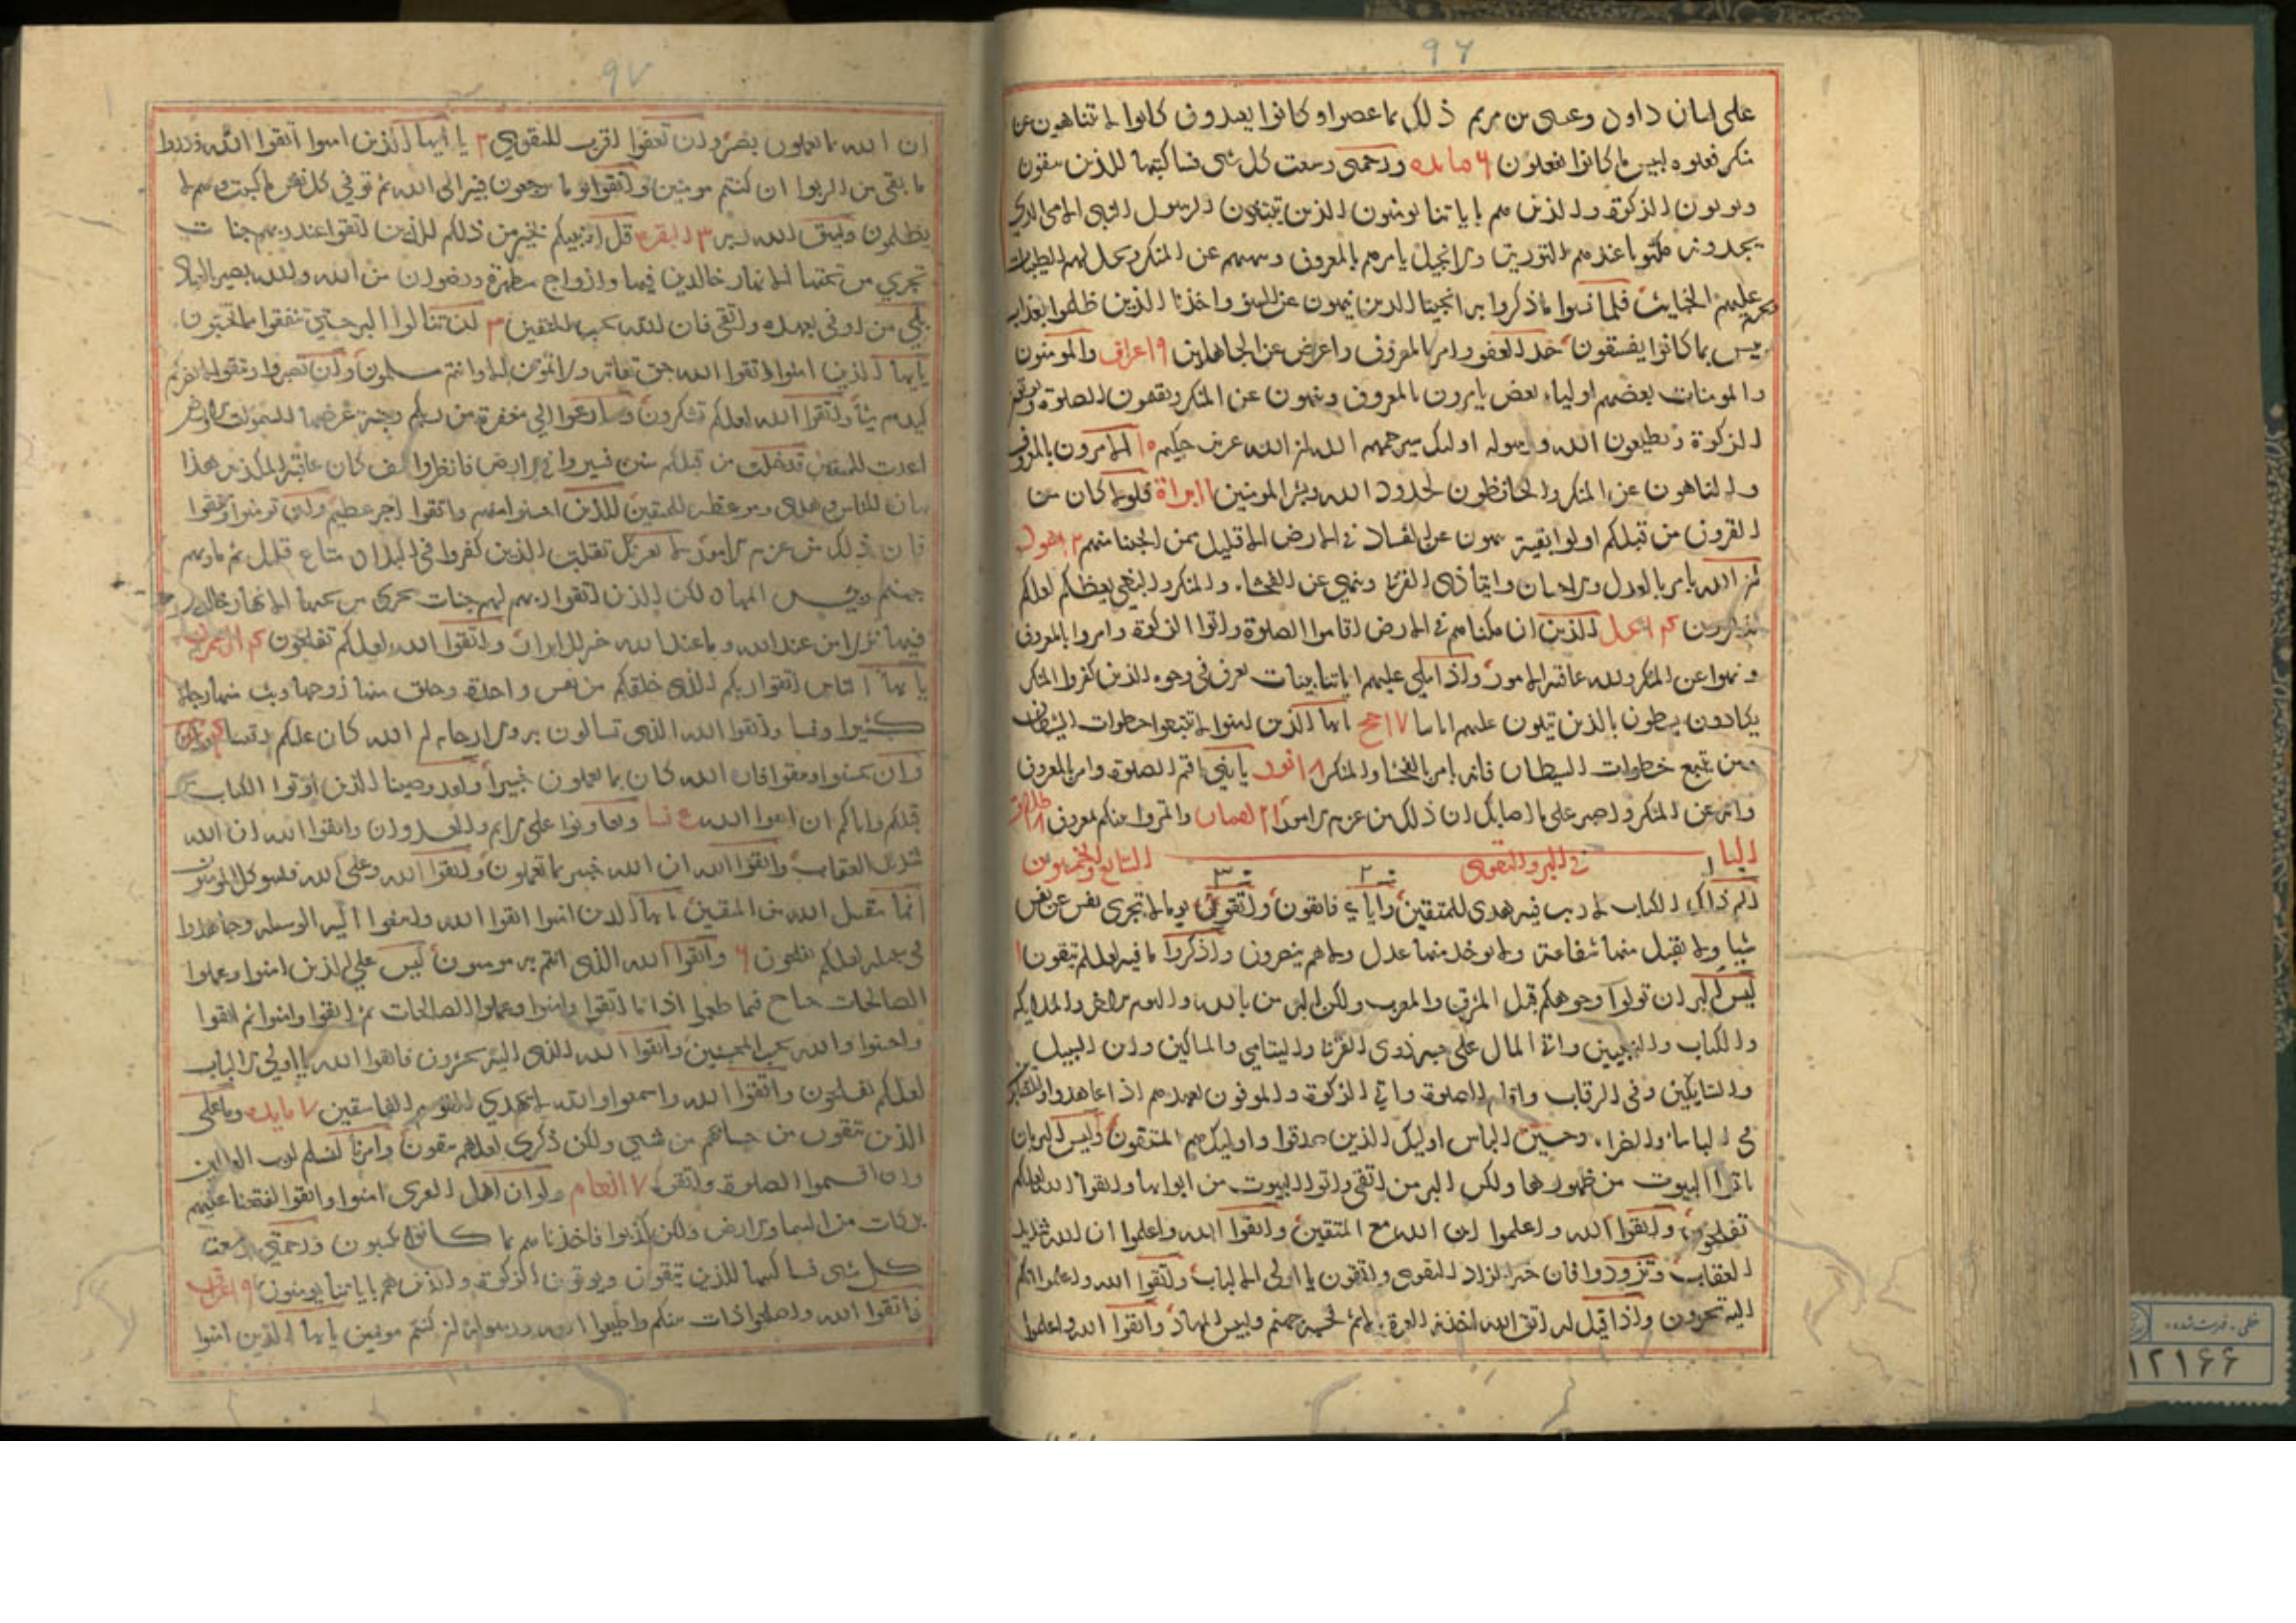 ۹۶
علی لسان داود وعیسی بن مریم ذلک بما عصوا و کانوا یعتدون کانوا لا یتناهون عن
منکر فعلوه لبیس ما کانوا یفعلون ۶ مایده ورحمتی وسعت کل شی فساکتبها للذین یتقون
ویوتون الزکوة والذین هم بایاتنا یومنون الذین یتبعون الرسول النبی الامی الذی
یجدونه مکتوبا عندهم التوریة والانجیل یامرهم بالمعروف وینهیهم عن المنکر ویحل لهم الطیبات
ویحرم علیهم الخبایث فلما نسوا ما ذکروا به انجینا الذین ینهون عن السوء واخذنا الذین ظلموا بعذاب
بیس بما کانوا یفسقون خذ العفو وامر بالمعروف واعرض عن الجاهلین ۹ اعراف والمومنون
والمومنات بعضهم اولیاء بعض یامرون بالمعروف وینهون عن المنکر ویقیمون الصلوة ویوتون
الزکوة ویطیعون الله ورسوله اولیک سیرحمهم الله ان الله عزیز حکیم ۱۰ الامرون بالمعروف
والناهون عن المنکر والحافظون لحدود الله وبشر المومنین ۱۱ براة فلولا کان من
القرون من قبلکم اولوا بقیة ینهون عن الفساد فی الارض الا قلیل ممن انجینا منهم ۱۲ هود
ان الله یامر بالعدل والاحسان وایتا ذی القربی وینهی عن الفحشاء والمنکر والبغی یعظکم لعلکم
تذکرون ۱۴ نحل الذین ان مکناهم فی الارض اقاموا الصلوة واتوا الزکوة وامروا بالمعروف
ونهوا عن المنکر ولله عاقبة الامور واذا تتلی علیهم ایاتنا بینات تعرف فی وجوه الذین کفروا المنکر
یکادون یسطون بالذین یتلون علیهم ایاتنا ۱۷ حج ایها الذین امنوا لا تتبعوا خطوات الشیطان
ومن یتبع خطوات الشیطان فانه یامر بالفحشا والمنکر ۱۸ نور یا بنی اقم الصلوة وامر بالمعروف
وانه عن المنکر واصبر علی ما اصابک ان ذلک من عزم الامور ۲۱ لقمان واتمروا بینکم بمعروف ۲۸ طلاق
الباب التاسع والخمسون فی البر والتقوی
الم ذلک الکتاب لا ریب فیه هدی للمتقین وایای فاتقون واتقوا یوما لا تجزی نفس عن نفس
شیا ولا یقبل منها شفاعة ولا یوخذ منها عدل ولا هم ینصرون واذکروا ما فیه لعلکم تتقون ۱
لیس البر ان تولوا وجوهکم قبل المشرق والمغرب ولکن البر من امن بالله والیوم الاخر والملایکه
والکتاب والنبیین واتی المال علی حبه ذوی القربی والیتامی والمساکین وابن السبیل
والسایلین وفی الرقاب واقام الصلوة واتی الزکوة والموفون بعهدهم اذا عاهدوا والصابرین
فی الباسا والضراء وحین الباس اولیک الذین صدقوا واولیک هم المتقون ولیس البر بان
تاتوا البیوت من ظهورها ولکن البر من اتقی واتوا البیوت من ابوابها واتقوا الله لعلکم
تفلحون واتقوا الله واعلموا ان الله مع المتقین واتقوا الله واعلموا ان الله شدید
العقاب وتزودوا فان خیر الزاد التقوی واتقون یا اولی الالباب واتقوا الله واعلموا انکم
الیه تحشرون واذا قیل له اتق الله اخذته العزة بالاثم فحسبه جهنم ولبیس المهاد واتقوا الله واعلموا
۹۷
ان الله بما تعملون بصیر وان تعفوا اقرب للتقوی ۲ یا ایها الذین امنوا اتقوا الله وذروا
ما بقی من الربوا ان کنتم مومنین واتقوا یوما ترجعون فیه الی الله ثم توفی کل نفس ما کسبت وهم لا
یظلمون ولیتق الله ربه ۳ البقره قل اونبیکم بخیر من ذلکم للذین اتقوا عند ربهم جنات
تجری من تحتها الانهار خالدین فیها وازواج مطهرة ورضوان من الله والله بصیر بالعباد
بلی من اوفی بعهده واتقی فان الله یحب المتقین ۳ لن تنالوا البر حتی تنفقوا مما تحبون
یا ایها الذین امنوا اتقوا الله حق تقاته ولا تموتن الا وانتم مسلمون وان تصبروا وتتقوا لا یضرکم
کیدهم شیا واتقوا الله لعلکم تشکرون وسارعوا الی مغفرة من ربکم وجنة عرضها السموات والارض
اعدت للمتقین قد خلت من قبلکم سنن فسیروا فی الارض فانظروا کیف کان عاقبة المکذبین هذا
بیان للناس وهدی وموعظة للمتقین للذین احسنوا منهم واتقوا اجر عظیم وان تومنوا وتتقوا
فان ذلک من عزم الامور لا یغرنک تقلب الذین کفروا فی البلاد متاع قلیل ثم ماویهم
جهنم وبیس المهاد لکن الذین اتقوا ربهم لهم جنات تجری من تحتها الانهار خالدین
فیها نزلا من عند الله وما عند الله خیر للابرار واتقوا الله لعلکم تفلحون ۴ ال عمران
یا ایها الناس اتقوا ربکم الذی خلقکم من نفس واحدة وخلق منها زوجها وبث منهما رجالا
کثیرا ونسا واتقوا الله الذی تسالون به والارحام ان الله کان علیکم رقیبا
وان تحسنوا وتتقوا فان الله کان بما تعملون خبیرا ولقد وصینا الذین اوتوا الکتاب
قبلکم وایاکم ان اتقوا الله نسا وتعاونوا علی الاثم والعدوان واتقوا الله ان الله
شدید العقاب واتقوا الله ان الله خبیر بما تعملون واتقوا الله وعلی الله فلیتوکل المومنون
انما یتقبل الله من المتقین یا ایها الذین امنوا اتقوا الله وابتغوا الیه الوسیله وجاهدوا
فی سبیله لعلکم تفلحون ۶ واتقوا الله الذی انتم به مومنون لیس علی الذین امنوا وعملوا
الصالحات جناح فیما طعموا اذا ما اتقوا وامنوا وعملوا الصالحات ثم اتقوا وامنوا ثم اتقوا
واحسنوا والله یحب المحسنین واتقوا الله الذی الیه تحشرون فاتقوا الله یا اولی الالباب
لعلکم تفلحون واتقوا الله واسمعوا والله لا یهدی القوم الفاسقین ۷ مایده وما علی
الذین یتقون من حسابهم من شی ولکن ذکری لعلهم یتقون وامرنا لنسلم لرب العالمین
وان اقیموا الصلوة واتقوه ۷ انعام ولو ان اهل القری امنوا واتقوا لفتحنا علیهم
برکات من السما والارض ولکن کذبوا فاخذناهم بما کانوا یکسبون ورحمتی وسعت
کل شی فساکتبها للذین یتقون ویوتون الزکوة والذین هم بایاتنا یومنون ۹ اعراف
فاتقوا الله واصلحوا ذات بینکم واطیعوا الله ورسوله ان کنتم مومنین یا ایها الذین امنوا
خطی - فهرست شده
۱۲۱۶۶